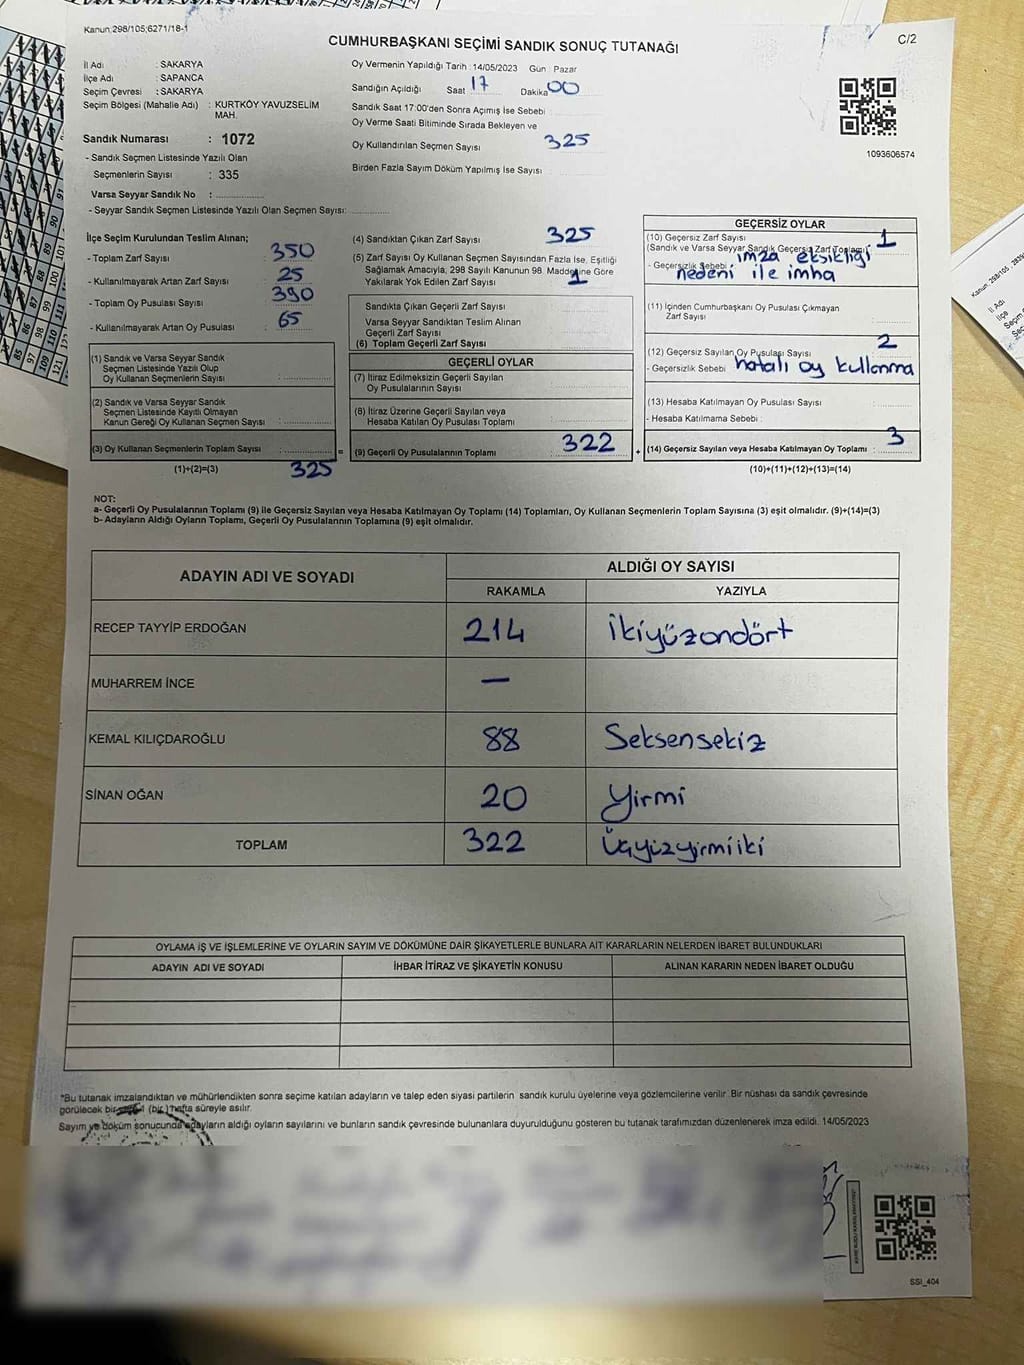 Kanun:298/105;6271/18-1
C/2
CUMHURBAŞKANI SEÇİMİ SANDIK SONUÇ TUTANAĞI
İl Adı : SAKARYA
İlçe Adı : SAPANCA
Seçim Çevresi : SAKARYA
Seçim Bölgesi (Mahalle Adı) : KURTKÖY YAVUZSELİM MAH.
Sandık Numarası : 1072
- Sandık Seçmen Listesinde Yazılı Olan
Seçmenlerin Sayısı : 335
Varsa Seyyar Sandık No :
- Seyyar Sandık Seçmen Listesinde Yazılı Olan Seçmen Sayısı:
Oy Vermenin Yapıldığı Tarih :14/05/2023 Gün : Pazar
Sandığın Açıldığı Saat 17 Dakika 00
Sandık Saat 17:00'den Sonra Açımış İse Sebebi
Oy Verme Saati Bitiminde Sırada Bekleyen ve
Oy Kullandırılan Seçmen Sayısı 325
Birden Fazla Sayım Döküm Yapılmış İse Sayısı
1093606574
İlçe Seçim Kurulundan Teslim Alınan;
- Toplam Zarf Sayısı : 350
- Kullanılmayarak Artan Zarf Sayısı : 25
- Toplam Oy Pusulası Sayısı : 390
- Kullanılmayarak Artan Oy Pusulası : 65
(1) Sandık ve Varsa Seyyar Sandık
Seçmen Listesinde Yazılı Olup
Oy Kullanan Seçmenlerin Sayısı :
(2) Sandık ve Varsa Seyyar Sandık
Seçmen Listesinde Kayıtlı Olmayan
Kanun Gereği Oy Kullanan Seçmen Sayısı :
(3) Oy Kullanan Seçmenlerin Toplam Sayısı :
(1)+(2)=(3) 325
(4) Sandıktan Çıkan Zarf Sayısı : 325
(5) Zarf Sayısı Oy Kullanan Seçmen Sayısından Fazla İse, Eşitliği
Sağlamak Amacıyla, 298 Sayılı Kanunun 98. Maddesine Göre
Yakılarak Yok Edilen Zarf Sayısı : 1
Sandıkta Çıkan Geçerli Zarf Sayısı :
Varsa Seyyar Sandıktan Teslim Alınan
Geçerli Zarf Sayısı
(6) Toplam Geçerli Zarf Sayısı :
GEÇERLİ OYLAR
(7) İtiraz Edilmeksizin Geçerli Sayılan
Oy Pusulalarının Sayısı :
(8) İtiraz Üzerine Geçerli Sayılan veya
Hesaba Katılan Oy Pusulası Toplamı :
= (9) Geçerli Oy Pusulalarının Toplamı : 322 +
GEÇERSİZ OYLAR
(10) Geçersiz Zarf Sayısı 1
(Sandık ve Varsa Seyyar Sandık Geçersiz Zarf Toplamı)
- Geçersizlik Sebebi : imza eksikliği
nedeni ile imha
(11) İçinden Cumhurbaşkanı Oy Pusulası Çıkmayan
Zarf Sayısı
(12) Geçersiz Sayılan Oy Pusulası Sayısı 2
- Geçersizlik Sebebi hatalı oy kullanma
(13) Hesaba Katılmayan Oy Pusulası Sayısı
- Hesaba Katılmama Sebebi :
(14) Geçersiz Sayılan veya Hesaba Katılmayan Oy Toplamı : 3
(10)+(11)+(12)+(13)=(14)
NOT:
a- Geçerli Oy Pusulalarının Toplamı (9) ile Geçersiz Sayılan veya Hesaba Katılmayan Oy Toplamı (14) Toplamları, Oy Kullanan Seçmenlerin Toplam Sayısına (3) eşit olmalıdır. (9)+(14)=(3)
b- Adayların Aldığı Oyların Toplamı, Geçerli Oy Pusulalarının Toplamına (9) eşit olmalıdır.
ADAYIN ADI VE SOYADI
ALDIĞI OY SAYISI
RAKAMLA YAZIYLA
RECEP TAYYİP ERDOĞAN 214 ikiyüzondört
MUHARREM İNCE —
KEMAL KILIÇDAROĞLU 88 Seksensekiz
SİNAN OĞAN 20 yirmi
TOPLAM 322 Üçyüzyirmiiki
OYLAMA İŞ VE İŞLEMLERİNE VE OYLARIN SAYIM VE DÖKÜMÜNE DAİR ŞİKAYETLERLE BUNLARA AİT KARARLARIN NELERDEN İBARET BULUNDUKLARI
ADAYIN ADI VE SOYADI İHBAR İTİRAZ VE ŞİKAYETİN KONUSU ALINAN KARARIN NEDEN İBARET OLDUĞU
*Bu tutanak imzalandıktan ve mühürlendikten sonra seçime katılan adayların ve talep eden siyasi partilerin sandık kurulu üyelerine veya gözlemcilerine verilir. Bir nüshası da sandık çevresinde
görülecek bir yere 1 (bir) hafta süreyle asılır.
Sayım ve döküm sonucunda adayların aldığı oyların sayılarını ve bunların sandık çevresinde bulunanlara duyurulduğunu gösteren bu tutanak tarafımızdan düzenlenerek imza edildi. 14/05/2023
SSI_404